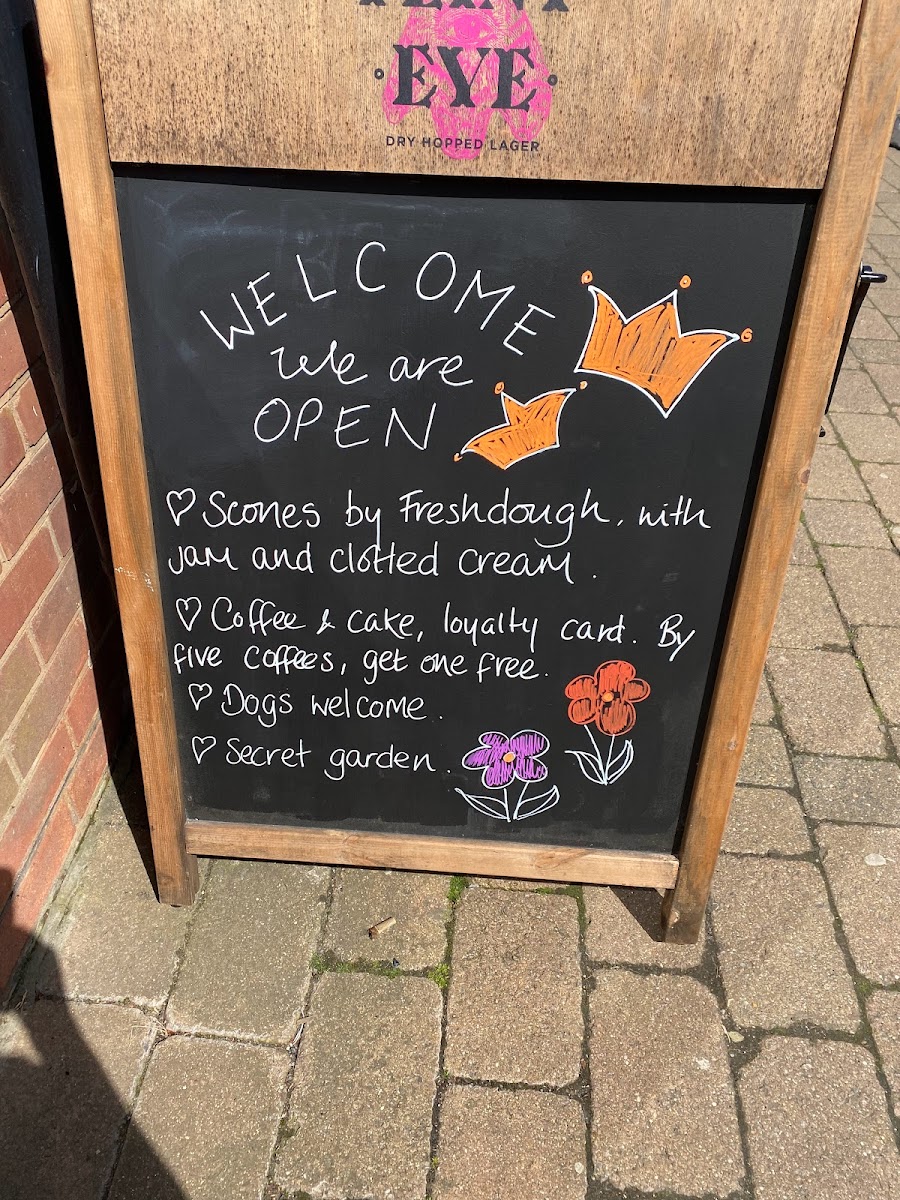 EYE
DRY HOPPED LAGER
WELCOME
We are
OPEN
Scones by Freshdough, with
jam and clotted cream.
Coffee & cake, loyalty card. By
five coffees, get one free.
Dogs welcome.
Secret garden.